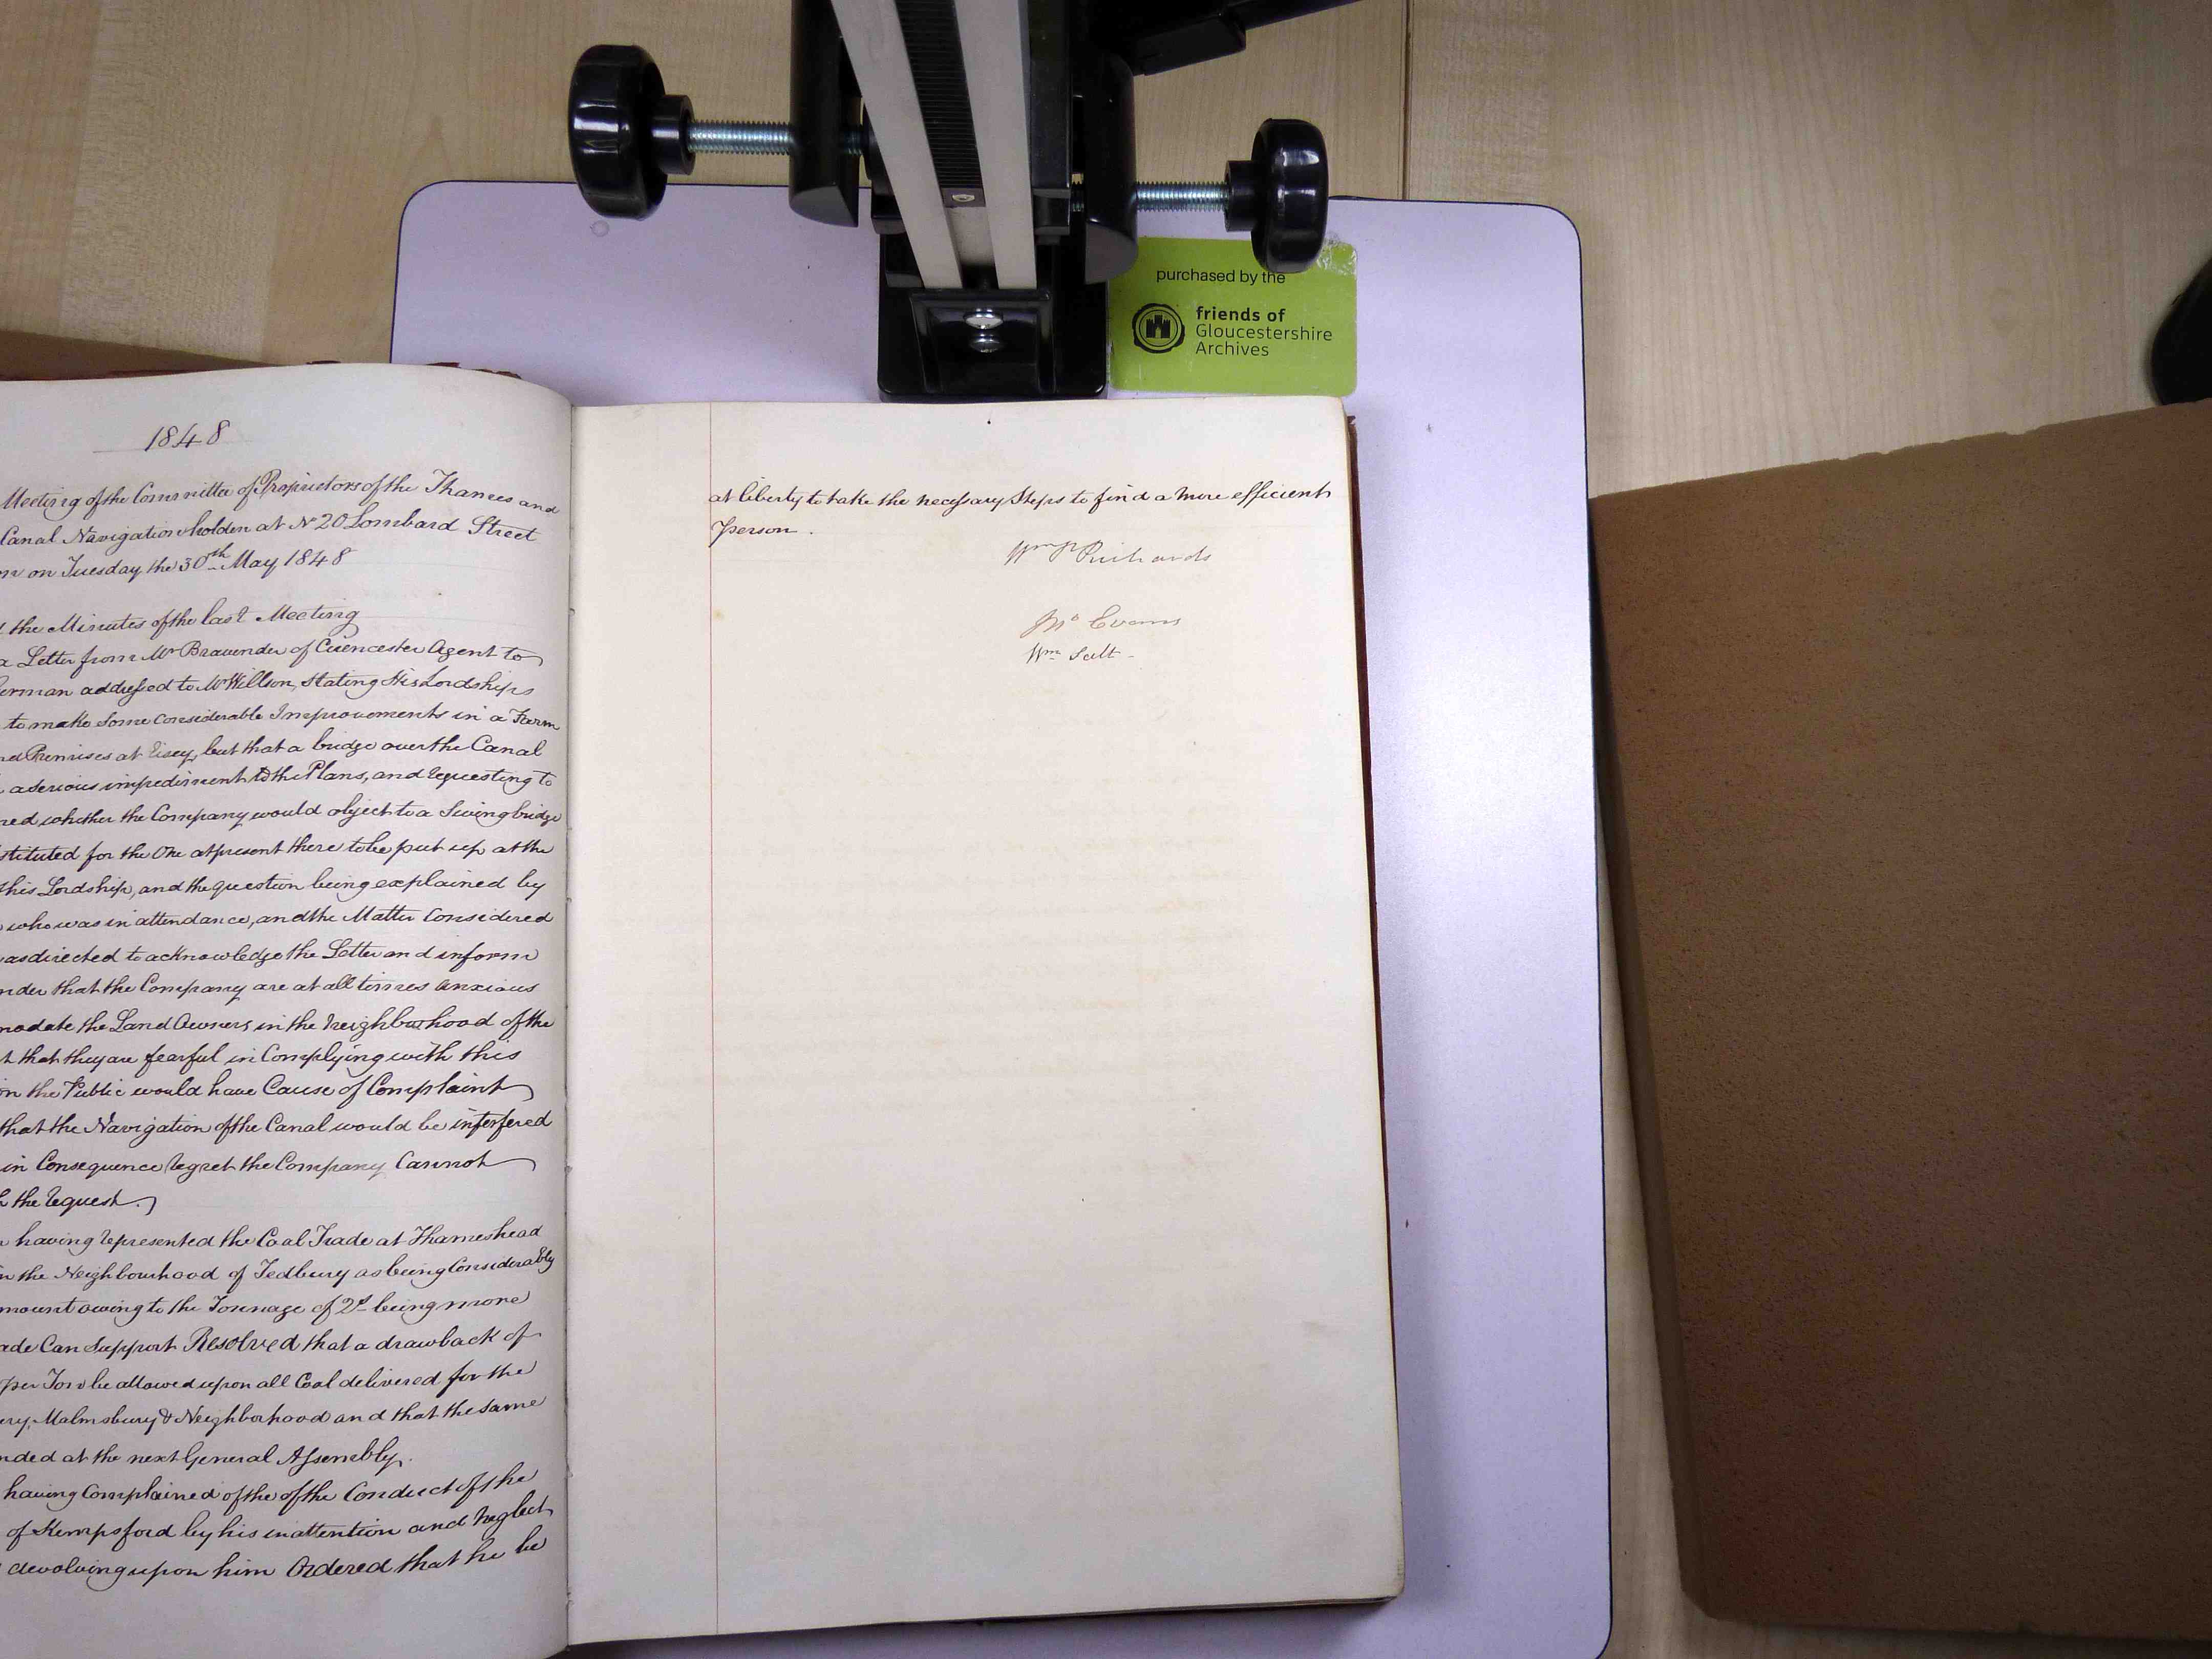 purchased by the
friends of
Gloucestershire
Archives
1848
Meeting of the Committee of Proprietors of the Thames and
Canal Navigation holden at No 20 Lombard Street
on Tuesday the 30th May 1848
the Minutes of the last Meeting
a Letter from Mr Bravender of Cirencester Agent to
addressed to Mr Willson, stating His Lordships
to make some considerable Improvements in a Farm
Premises at Eisey, but that a bridge over the Canal
a serious impediment to the Plans, and requesting to
whether the Company would object to a Swing bridge
stituted for the One at present there to be put up at the
his Lordship, and the question being explained by
who was in attendance, and the Matter Considered
as directed to acknowledge the Letter and inform
nder that the Company are at all times anxious
modate the Land Owners in the Neighburhood of the
that they are fearful in Complying with this
the Public would have Cause of Complaint
that the Navigation of the Canal would be interfered
in Consequence regret the Company Cannot
the request.
having represented the Coal Trade at Thameshead
the Neighbourhood of Tedbury as being Considerably
mount owing to the Tonnage of 2s being more
ade Can Support Resolved that a drawback of
per Ton be allowed upon all Coal delivered for the
ury, Malmsbury & Neighborhood and that the same
nded at the next General Assembly.
having Complained of the of the Conduct of the
of Kempsford by his inattention and neglect
devolving upon him Ordered that he be
at liberty to take the necessary Steps to find a more efficient
Person.
Wm P Richards
Jno Evans
Wm Salt